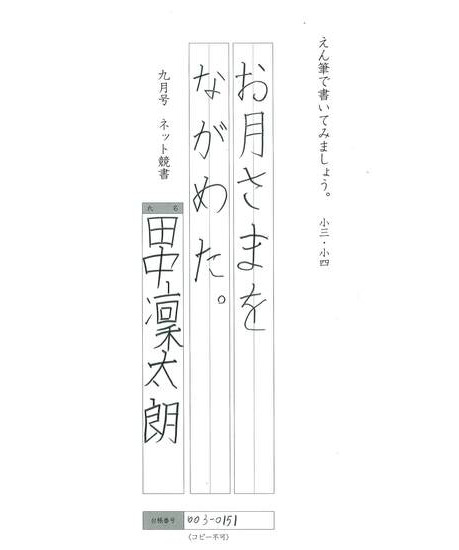 えん筆で書いてみましょう。 小三・小四
お月さまを
ながめた。
九月号 ネット競書
氏名
田中凛太朗
台帳番号 003-0151
(コピー不可)